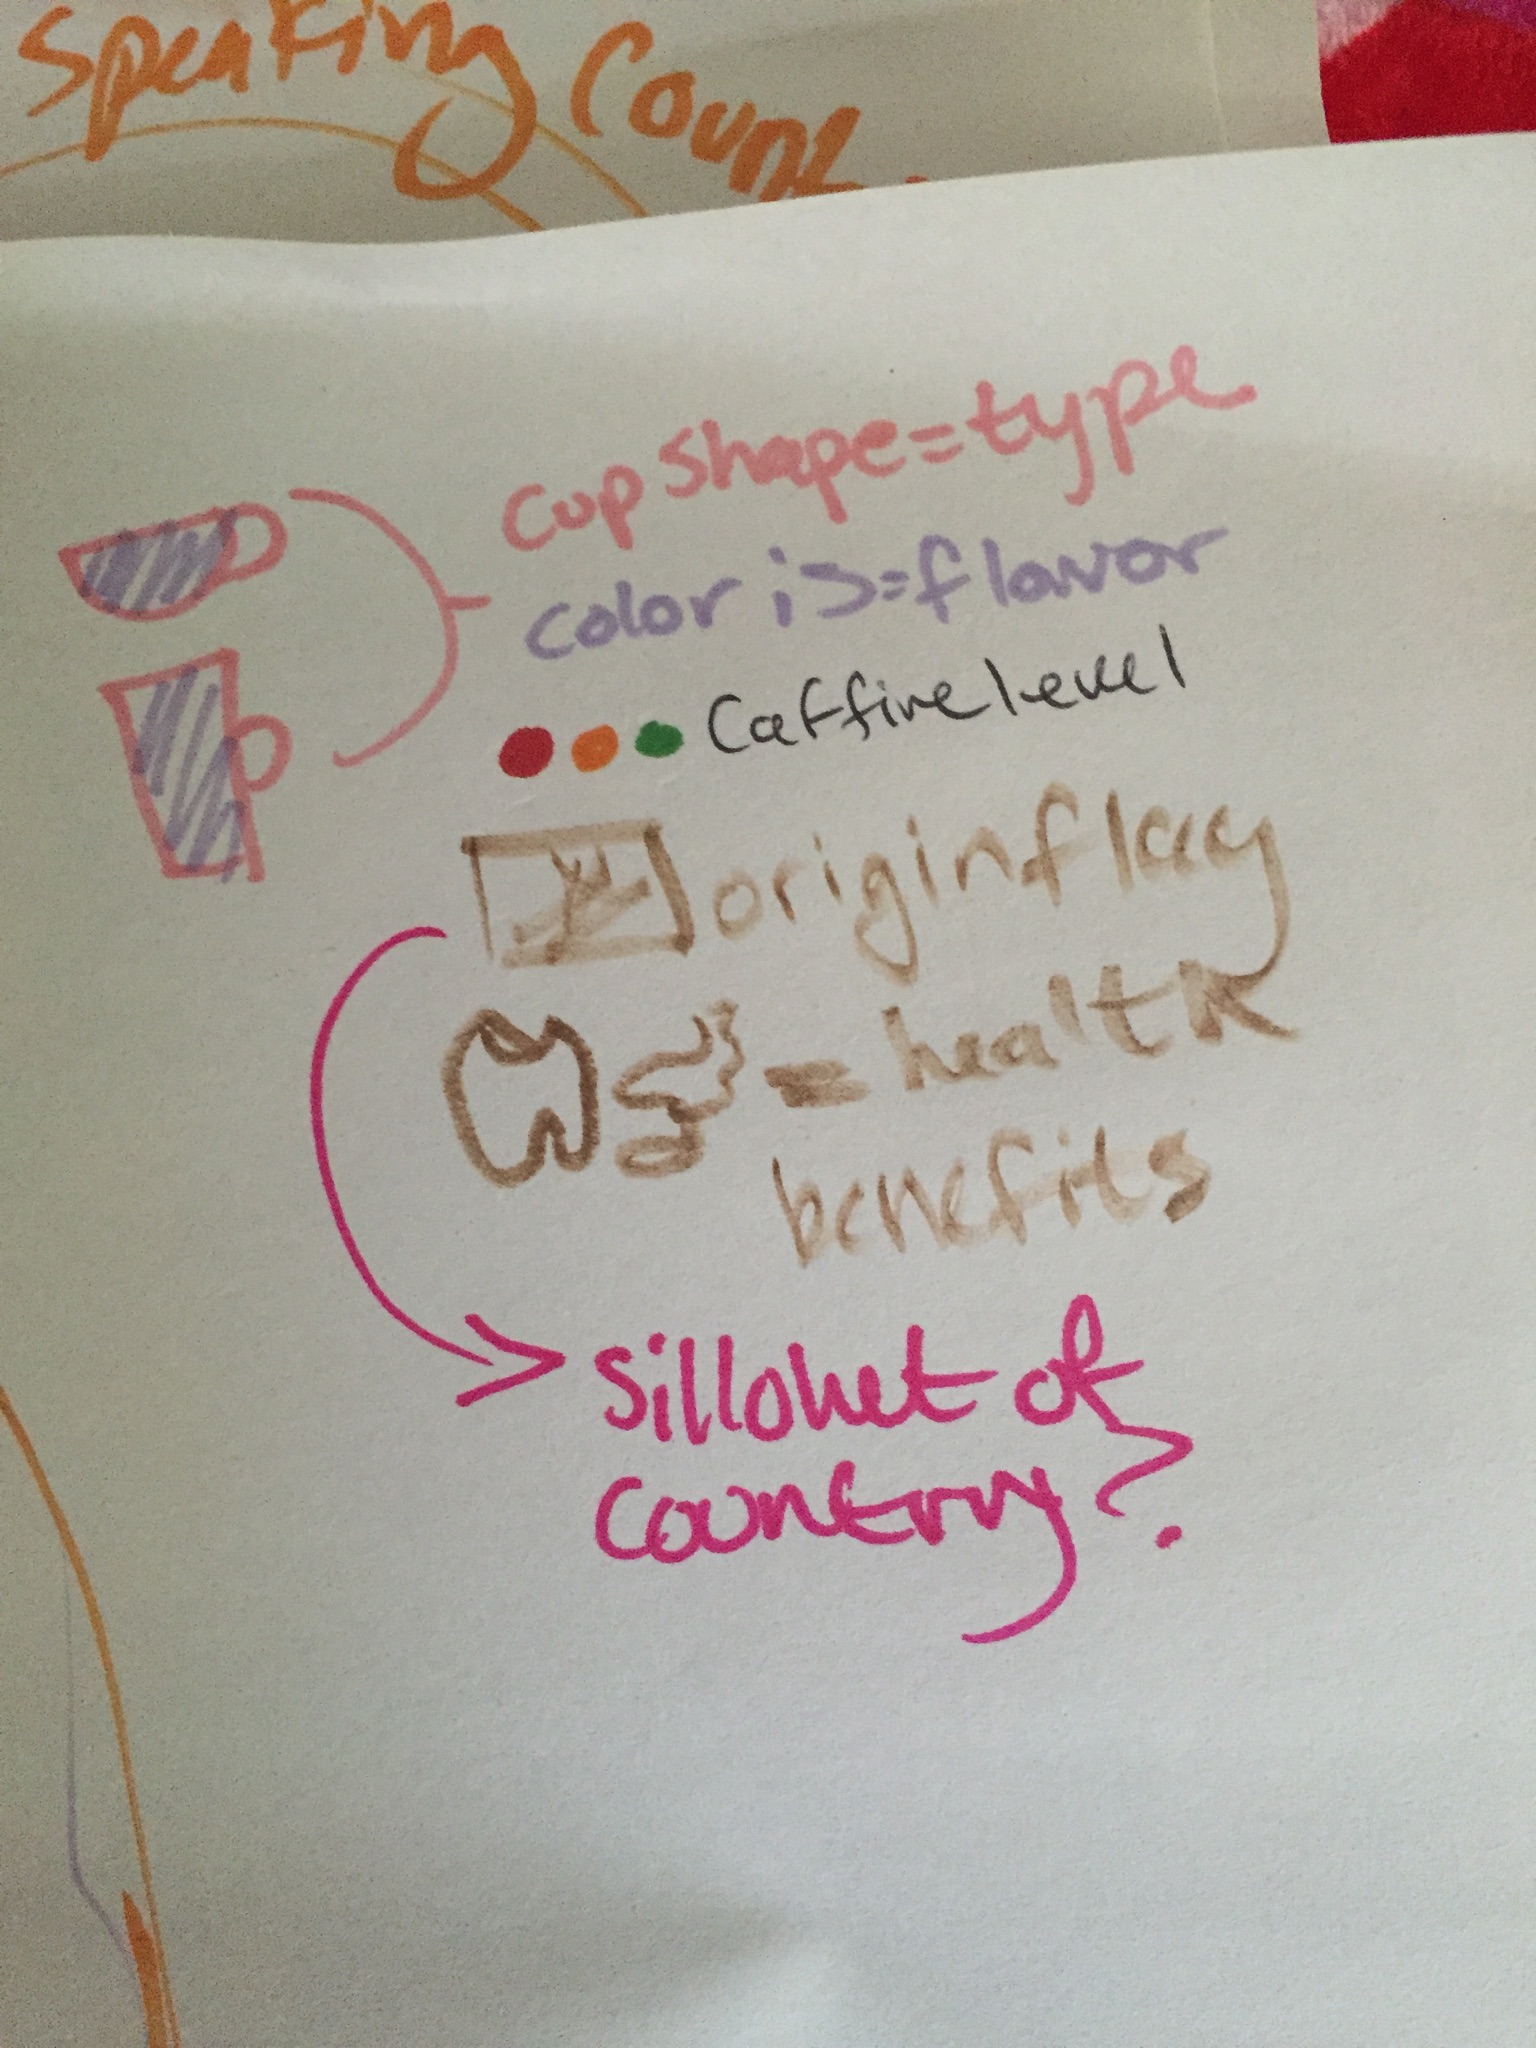 Speaking Count
cup shape = type
color is = flavor
Caffine level
origin flag
= health
benefits
Sillohet of
Country?